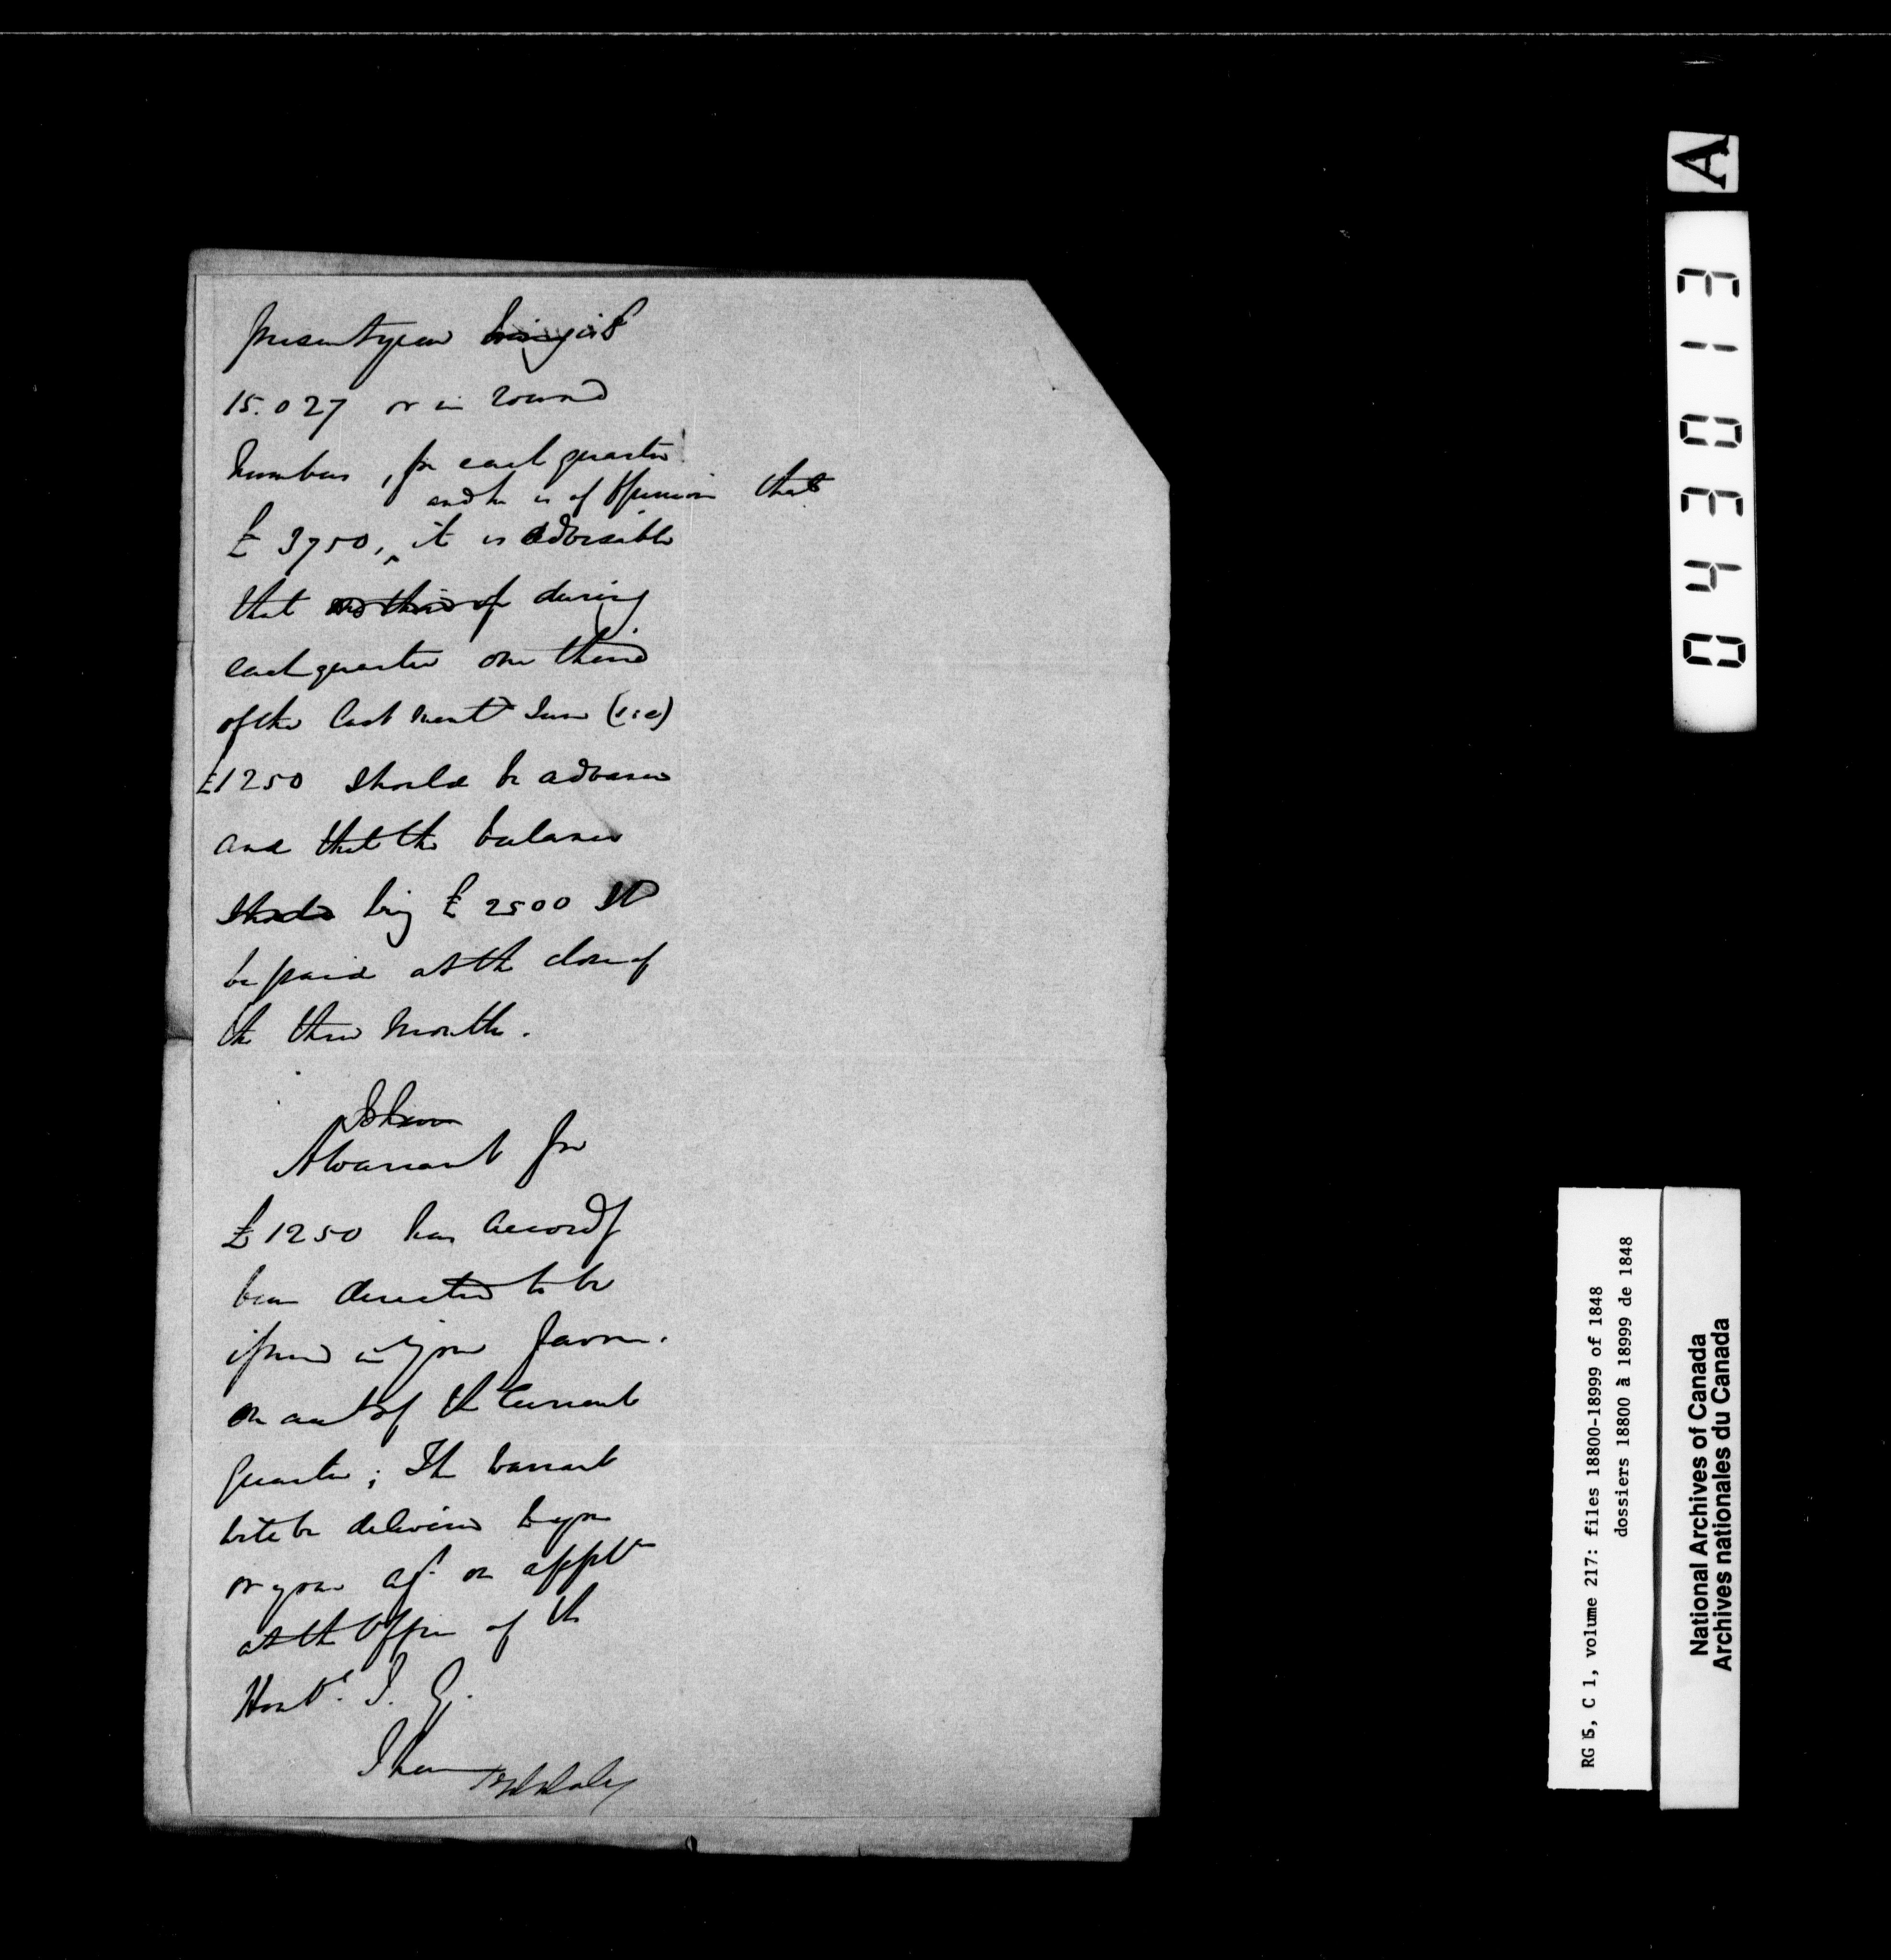 present year being is £
15.027 or in round
numbers, for each quarter
and he is of opinion that
£ 3750, it is advisable
that one third of during
each quarter one third
of the last ment sum (vie)
£1250 should be advance
and that the balance
should being £ 2500 Sd
be paid at the close of
the three months.
I have
A Warrant for
£1250 has accordy
been directed to be
issued in your favor.
on acct of the Current
quarter; The Warrant
will be delivered to you
or your agt on applcn
at the Office of the
Honble I. G.
I have
D Daly
A
043013
RG 5, C 1, volume 217: files 18800-18999 of 1848
dossiers 18800 à 18999 de 1848
National Archives of Canada
Archives nationales du Canada